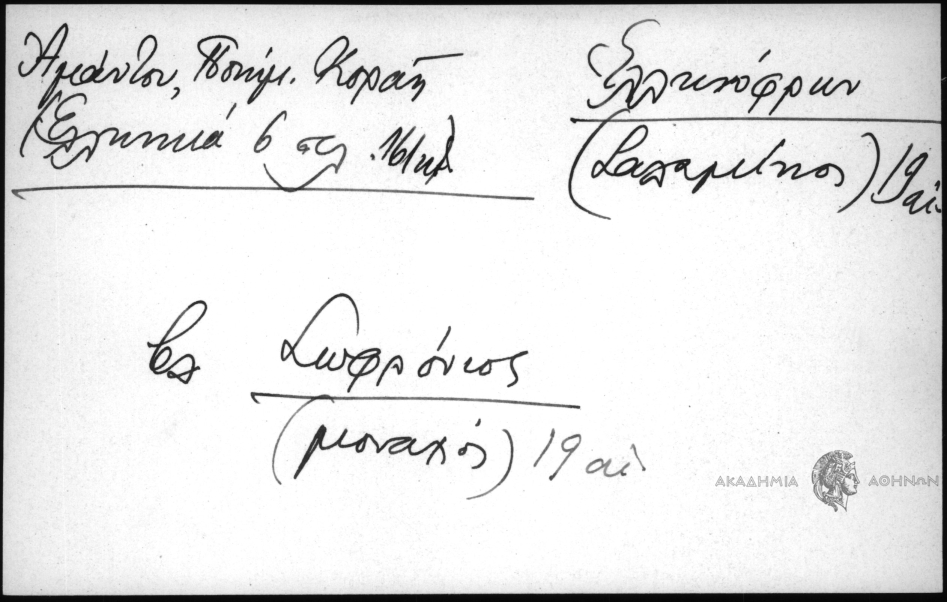 Ἀμάντου, Ποιήμ. Κοραῆ
(Ἑλληνικά 6 σελ. 161 κἑ)
Ἑλληνόφρων
(Σαλαμίνιος) 19 αἰ.
βλ Σωφρόνιος
(μοναχός) 19 αἰ.
ΑΚΑΔΗΜΙΑ ΑΘΗΝΩΝ